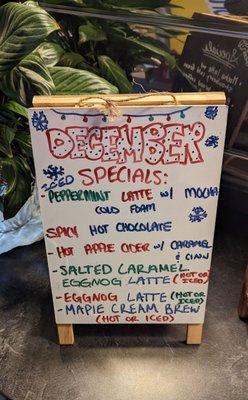 DECEMBER
SPECIALS:
- ICED
PEPPERMINT LATTE W/ MOCHA
COLD FOAM
SPICY HOT CHOCOLATE
- HOT APPLE CIDER W/ CARAMEL
& CINN
- SALTED CARAMEL
EGGNOG LATTE (HOT OR
ICED)
- EGGNOG LATTE (HOT OR
ICED)
- MAPLE CREAM BREW
(HOT OR ICED)